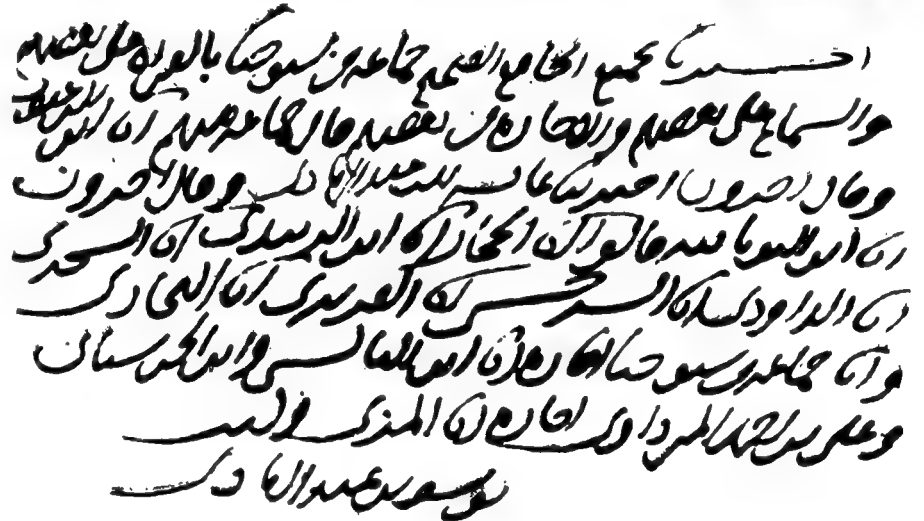 اخبرنا بجميع الجامع الصحيح جماعة من شيوخنا بالقراءة على بعضهم
والسماع على بعضهم والاجازة من بعضهم قال جماعة منهم انا ابن الزعبوب
وقال اخرون اخبرتنا عائشة بنت عبد الهادي وقال اخرون
انا ابن اليونانية قالوا انا الحجار انا ابن الزبيدي انا السجزي
انا الداودي انا السرخسي انا الفربري انا البخاري
وانا جماعة من شيوخنا اجازة انا ابن البالسي وابن الحرستاني
وعلي بن احمد المرداوي اجازة انا المزي وكتب
يوسف بن عبد الهادي